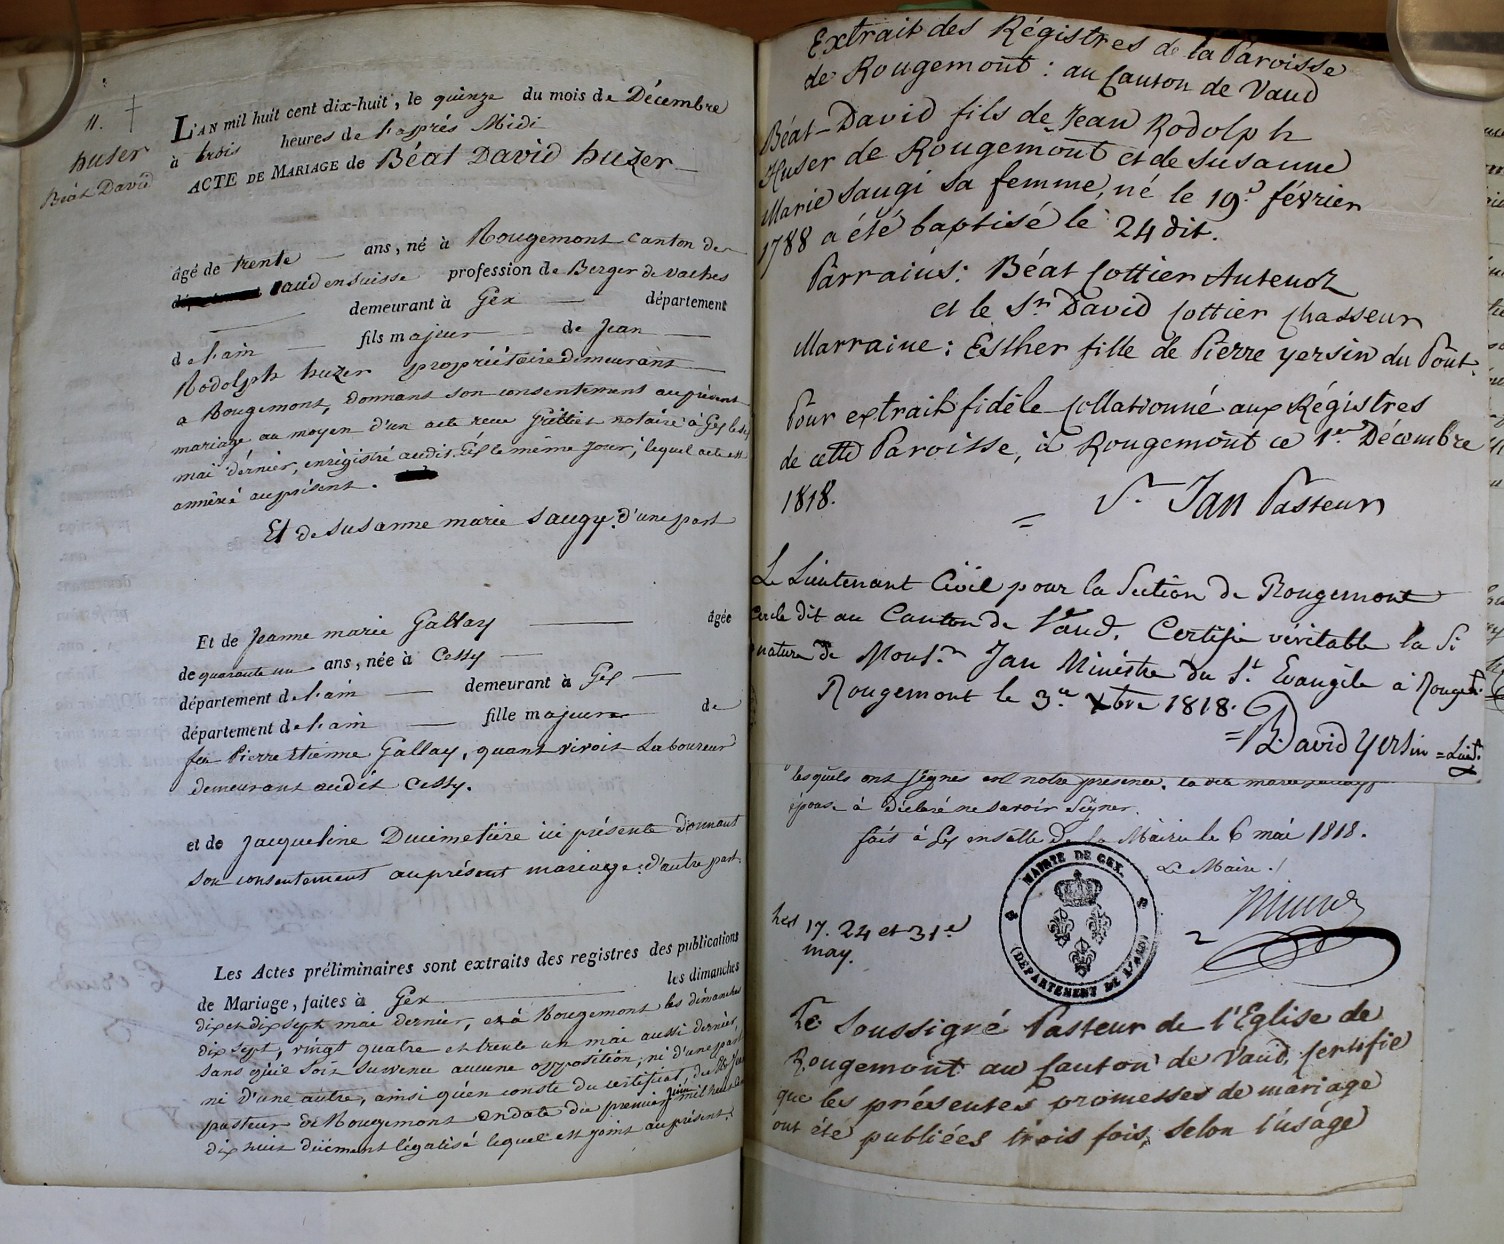 11. †
huser
Béat David
L'AN mil huit cent dix-huit, le quinze du mois de Décembre
à trois heures de l'après Midi
ACTE DE MARIAGE de Béat David huzer
âgé de trente ans, né à Rougemont Canton de
vaud en Suisse profession de Berger de vaches
demeurant à Gex département
de l'ain fils majeur de Jean
Rodolph huzer propriétaire demeurant
a Rougemont, donnant son consentement au présent
mariage au moyen d'un acte reçu notaire à Gex le
mai dernier, enrégistré audit Gex le même jour, lequel acte est
annéxé au présent.
Et de susanne marie saugy. d'une part
Et de Jeanne marie Gallay agée
de quarante un ans, née à Cessy
département de l'ain demeurant à Gex
département de l'ain fille majeure de
feu Pierre Etienne Gallay, quand vivoit Laboureur
demeurant audit Cessy.
et de Jacqueline Ducimetière ici présente donnant
son consentement au présent mariage. d'autre part.
Les Actes préliminaires sont extraits des registres des publications
de Mariage, faites à Gex les dimanches
dix et dix sept mai dernier, et à Rougemont les dimanches
dix sept, vingt quatre et trente un mai aussi dernier,
sans qu'il soit survenu aucune opposition, ni d'une part
ni d'une autre, ainsi qu'en conste du certificat de Mr Jan
pasteur de Rougemont en date du premier juin mil huit cent
dix huit duëment légalisé lequel est joint au présent.
Extrait des Régistres de la Paroisse
de Rougemont : au Canton de Vaud
Béat-David fils de Jean Rodolph
Huser de Rougemont et de Susanne
Marie Saugi sa femme, né le 19e février
1788 a été baptisé le 24 dit.
Parrains : Béat Cottier Autenot
et le Sr David Cottier Chasseur
Marraine : Esther fille de Pierre Yersin du Pont.
Pour extrait fidèle Collationné aux Régistres
de cette Paroisse, à Rougemont ce 1er Décembre
1818.
= Sr Jan Pasteur
Le Lieutenant Civil pour la Section de Rougemont
Cercle dit au Canton de Vaud, Certifie véritable la Si
nature de Monsr Jan Ministre du St Evangile à Rouget
Rougemont le 3e Xbre 1818.
= David Yersin = Lieut.
lesquels ont signés en notre présence. la dite marie
épouse à déclaré ne savoir signer.
fait à Gex en salle de la Mairie le 6 mai 1818.
Le Maire.
MAIRIE DE GEX.
(DÉPARTEMENT DE L'AIN)
les 17. 24 et 31e
may.
Le Soussigné Pasteur de l'Eglise de
Rougemont au Canton de Vaud, Certifie
que les présentes promesses de mariage
ont été publiées trois fois, selon l'uságe